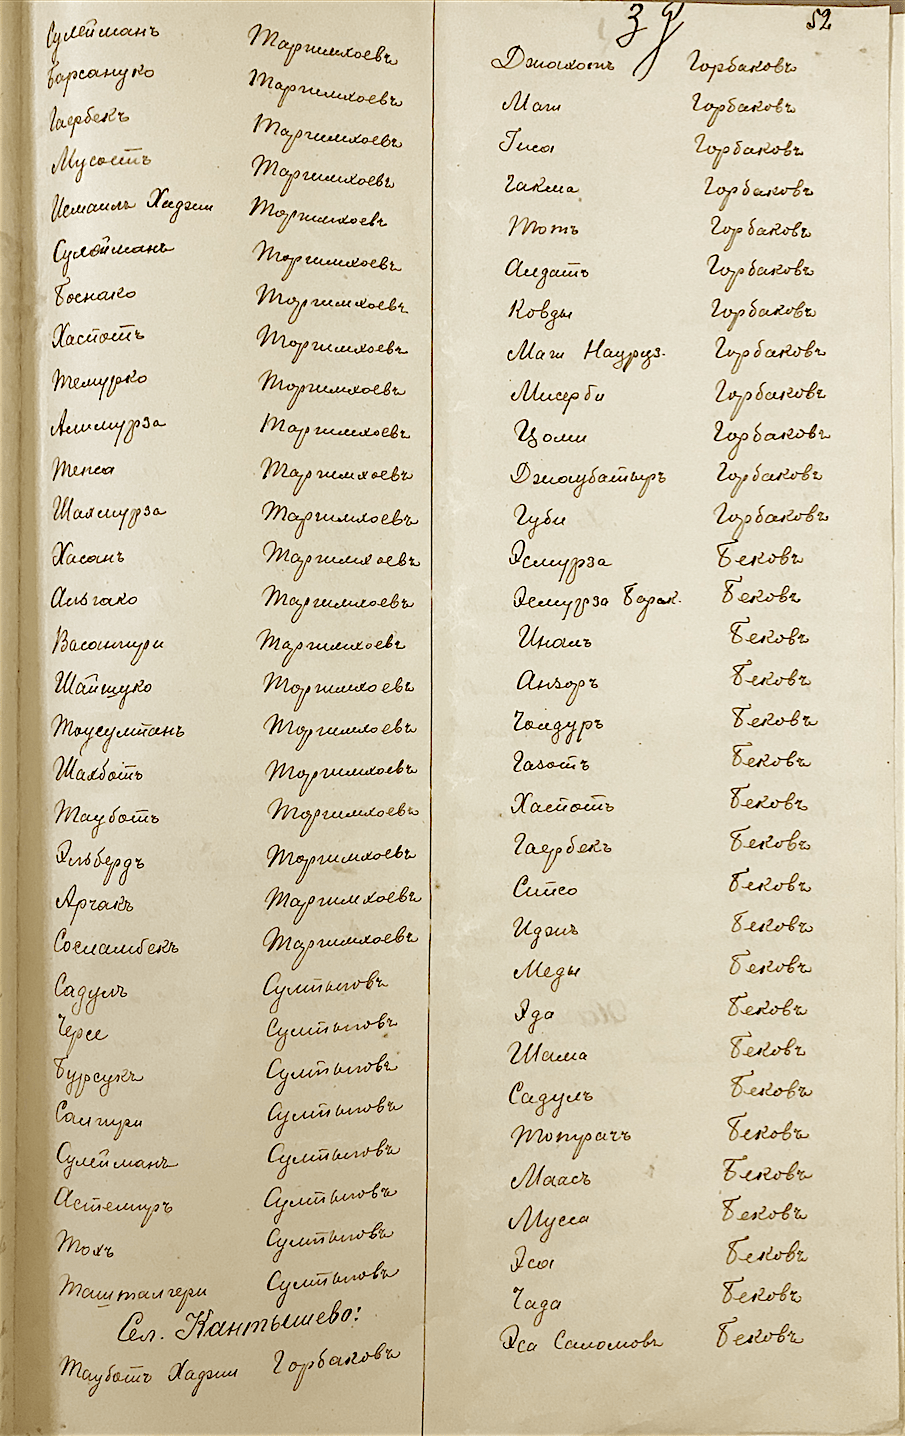 52
Сулейманъ Таргимхоевъ
Барсануко Таргимхоевъ
Гаербекъ Таргимхоевъ
Мусостъ Таргимхоевъ
Исмаилъ Хаджи Таргимхоевъ
Сулейманъ Таргимхоевъ
Боснако Таргимхоевъ
Хаспотъ Таргимхоевъ
Темурко Таргимхоевъ
Алимурза Таргимхоевъ
Тепса Таргимхоевъ
Шахмурза Таргимхоевъ
Хасанъ Таргимхоевъ
Альгако Таргимхоевъ
Васангири Таргимхоевъ
Шаишуко Таргимхоевъ
Таусултанъ Таргимхоевъ
Шахботъ Таргимхоевъ
Тауботъ Таргимхоевъ
Эльбердъ Таргимхоевъ
Арчакъ Таргимхоевъ
Сосламбекъ Таргимхоевъ
Садулъ Султыговъ
Черси Султыговъ
Бурсукъ Султыговъ
Саигири Султыговъ
Сулейманъ Султыговъ
Астемиръ Султыговъ
Тохъ Султыговъ
Таштагери Султыговъ
Сел. Кантышево:
Тауботъ Хаджи Горбаковъ
Джахотъ Горбаковъ
Маги Горбаковъ
Гиса Горбаковъ
Гакма Горбаковъ
Тотъ Горбаковъ
Аидатъ Горбаковъ
Ковды Горбаковъ
Маги Науруз. Горбаковъ
Мисерби Горбаковъ
Цоми Горбаковъ
Джаубатыръ Горбаковъ
Губи Горбаковъ
Эсмурза Бековъ
Эсмурза Борак. Бековъ
Иналъ Бековъ
Анзоръ Бековъ
Чандуръ Бековъ
Газотъ Бековъ
Хаспотъ Бековъ
Гаербекъ Бековъ
Сипсо Бековъ
Идигъ Бековъ
Меды Бековъ
Эда Бековъ
Шама Бековъ
Садулъ Бековъ
Топурачъ Бековъ
Маасъ Бековъ
Мусса Бековъ
Эса Бековъ
Чада Бековъ
Эса Саломовъ Бековъ